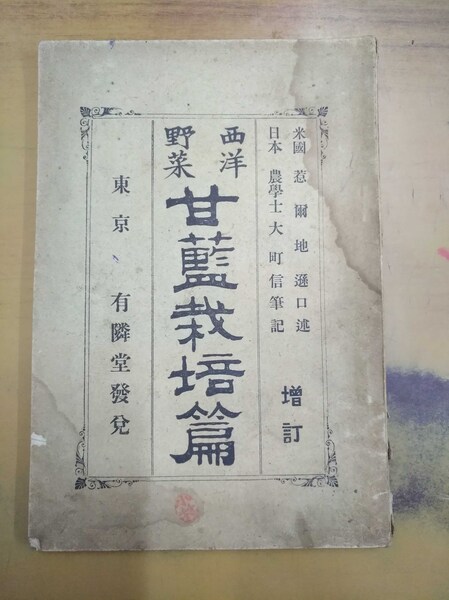 米國 惹爾地遜口述
日本 農學士大町信筆記
增訂
西洋
野菜
甘藍栽培篇
東京 有隣堂發兌